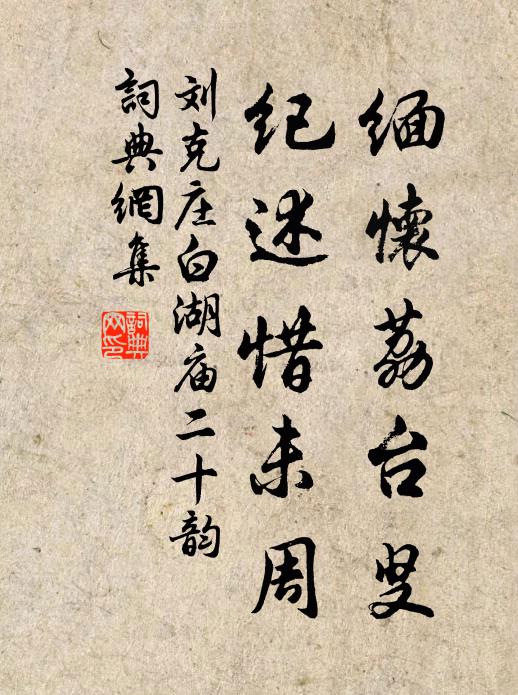 緬懷荔台叟
紀述惜未周
刘克庄白湖庙二十韵
詞典網集
詞典網印